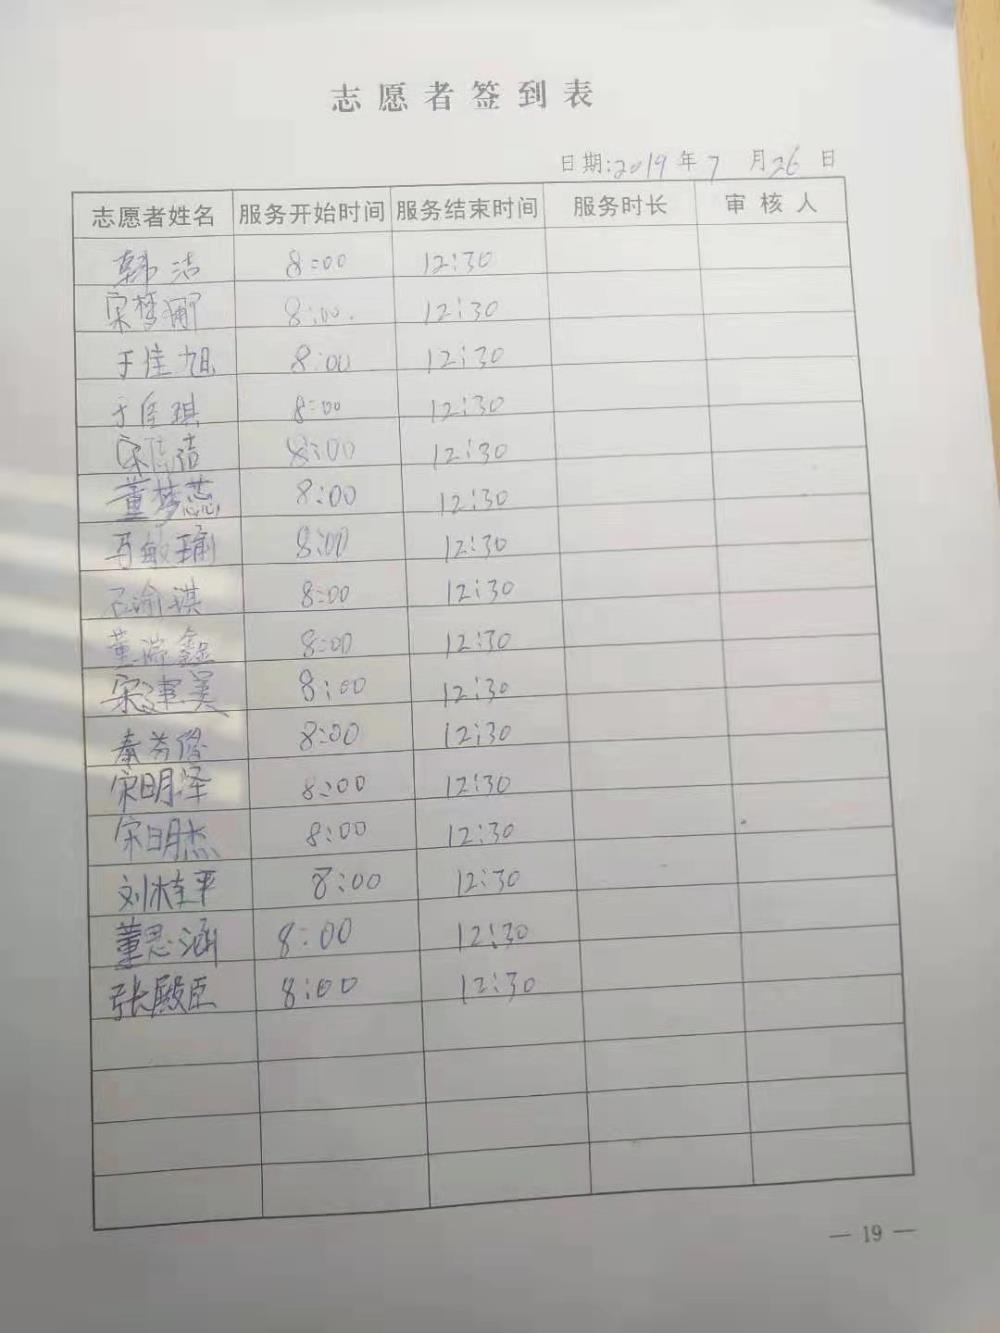 志愿者签到表
日期:2019年7月26日
志愿者姓名 服务开始时间 服务结束时间 服务时长 审核人
韩洁 8:00 12:30
宋梦 8:00. 12:30
于佳旭 8:00 12:30
于佳琪 8:00 12:30
宋 洁 8:00 12:30
董梦蕊 8:00 12:30
马敏瑜 8:00 12:30
石渝琪 8:00 12:30
董瑞鑫 8:00 12:30
宋 美 8:00 12:30
秦芳俊 8:00 12:30
宋明泽 8:00 12:30
宋明杰 8:00 12:30
刘桂平 8:00 12:30
董思涵 8:00 12:30
张殿臣 8:00 12:30
— 19 —